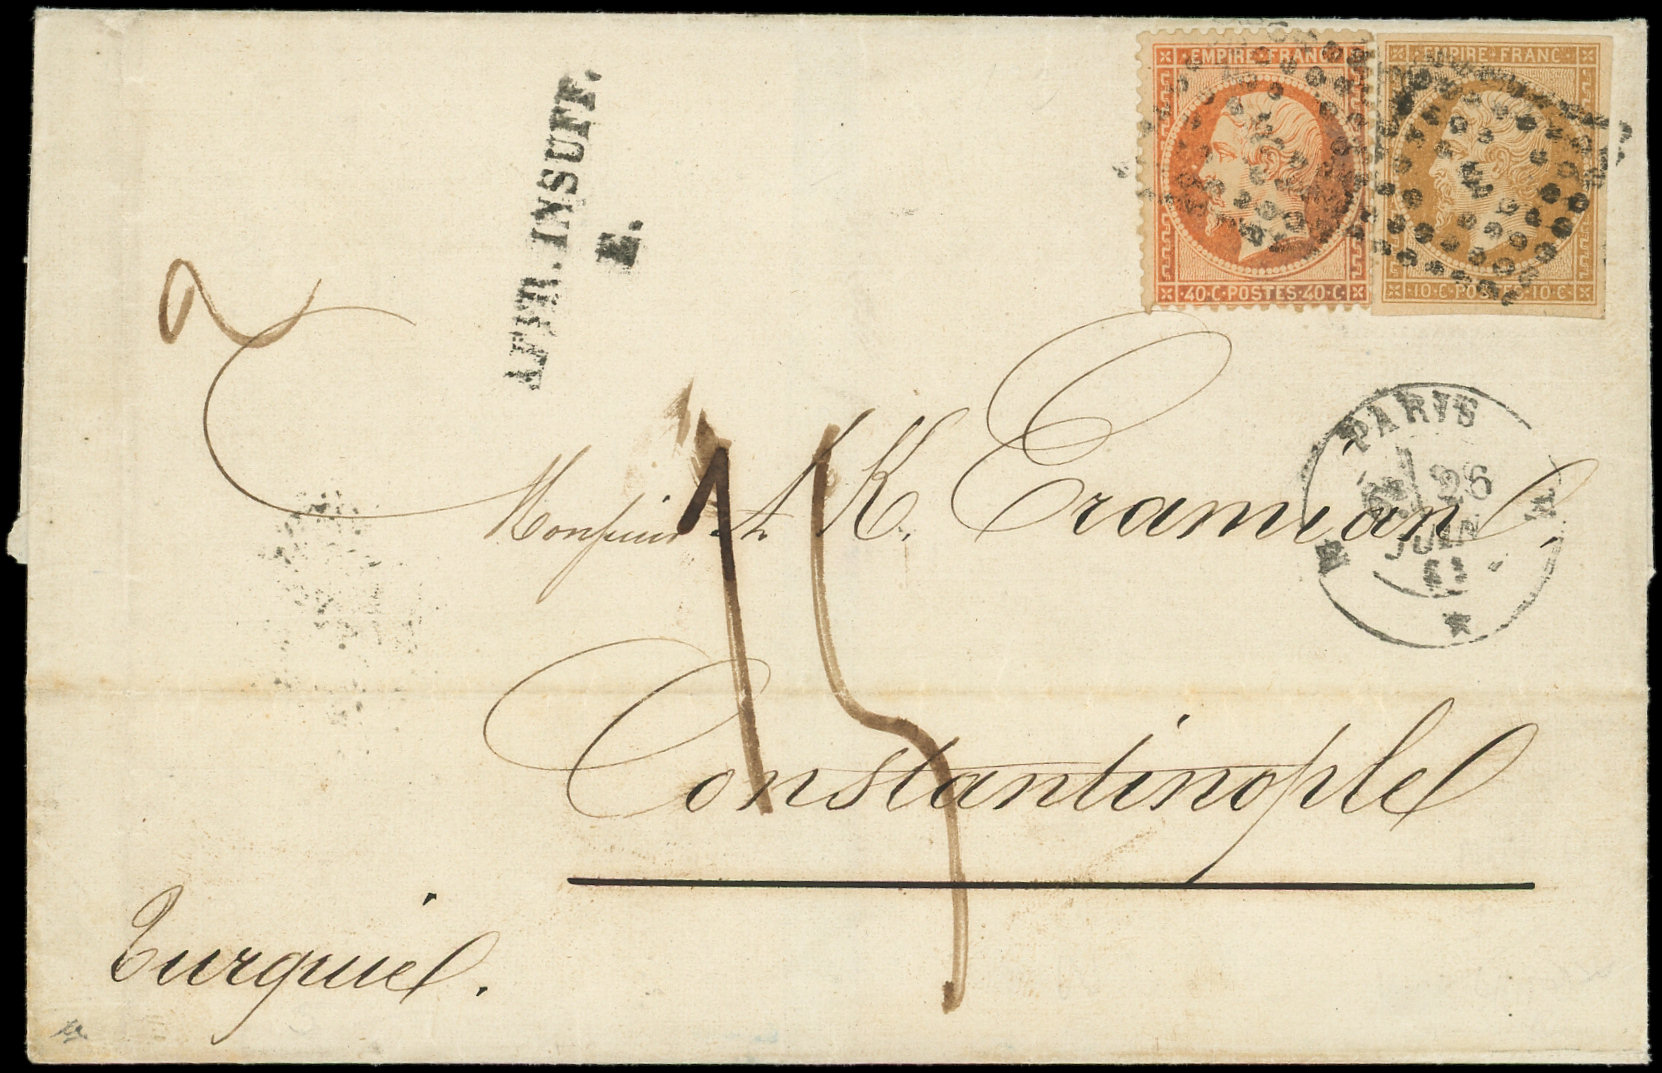 EMPIRE FRANC
40·C·POSTES·40·C
EMPIRE FRANC
10·C·POSTES·10·C
AFFR. INSUFF.
PARIS
26
JUIN
Monsieur K. Eramian
15
Constantinople
Turquie.